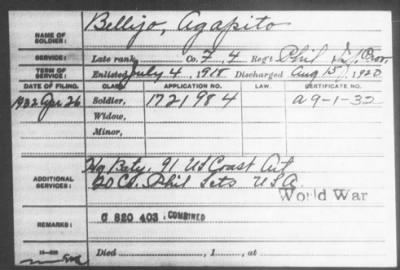 NAME OF SOLDIER: Bellijo, Agapito
SERVICE: Late rank, Co. F, 4 Reg't Phil
TERM OF SERVICE: Enlisted July 4, 1918 Discharged Aug 15, 1920
DATE OF FILING. CLASS. APPLICATION NO. LAW. CERTIFICATE NO.
1932 Apr 26 Soldier, 1721984 A 9-1-32
Widow,
Minor,
ADDITIONAL SERVICES: Hq Bety, 91 US Coast Art
20 Co. Phil Scts USA
World War
REMARKS: C 820 403. COMBINED
Died , 1 , at